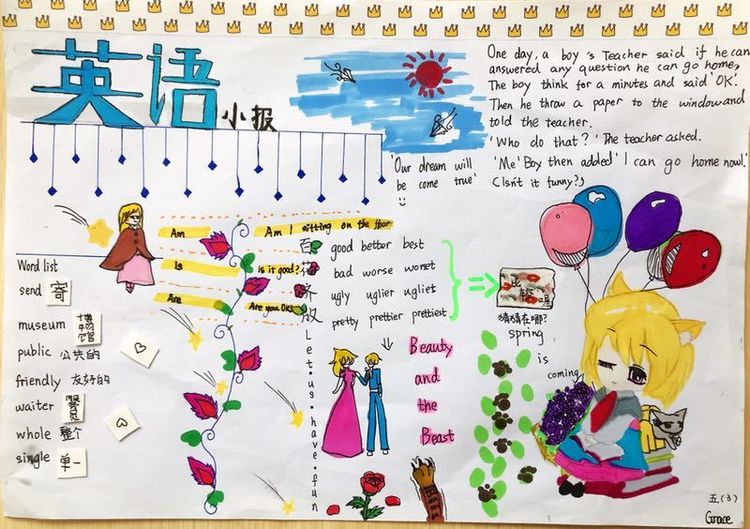 英语
小报
One day, a boy's Teacher said if he can
answered any question he can go home,
The boy think for a minutes and said 'OK'.
Then he throw a paper to the window and
told the teacher.
'Who do that?' The teacher asked.
'Me' Boy then added 'I can go home now!'
(Isn't it funny?)
'Our dream will
be come true'
Am
Am I sitting on the
Is
Is it good?
Are
Are you OK?
百
放
Let·us·have·fun
good better best
bad worse worset
ugly uglier ugliet
pretty prettier prettiest
Beauty
and
the
Beast
猜猜在哪?
spring
is
coming
Word list
send 寄
museum 博物馆
public 公共的
friendly 友好的
waiter
whole 整个
single 单一
五(3)
Grace